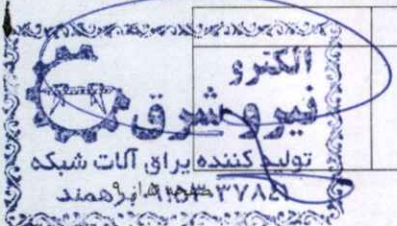 الکترو
نیرو شرق
تولید کننده یراق آلات شبکه